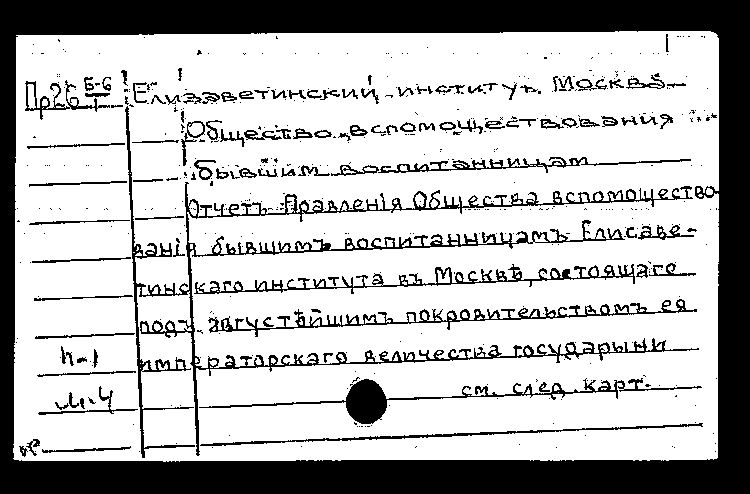 Пр26 Б-6/1 Елизаветинский институт. Москва
Общество вспомоществования
бывшим воспитанницам
Отчетъ Правленія Общества вспомощество-
ванія бывшимъ воспитанницамъ Елисаве-
тинскаго института въ Москвѣ, состоящаго
подъ августѣйшимъ покровительствомъ ея
императорскаго величества государыни
см. след. карт.